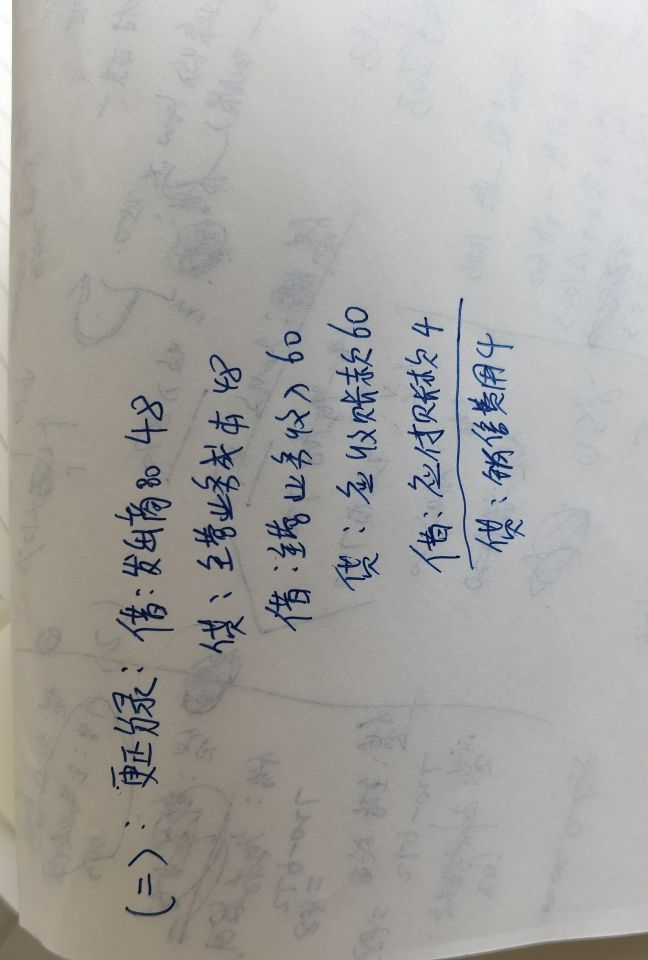 (二):更正分录:借:发出商品 48
贷:主营业务成本 48
借:主营业务收入 60
贷:应收账款 60
借:应付账款 4
贷:销售费用 4